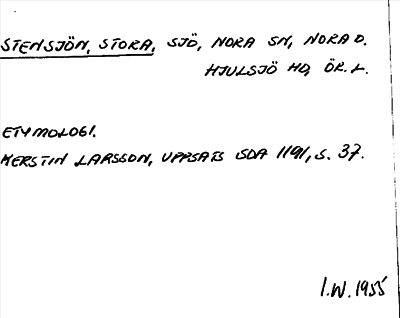 STENSJÖN, STORA, SJÖ, NORA SN, NORA O.
HJULSJÖ HD, ÖR. L.
ETYMOLOGI.
KERSTIN LARSSON, UPPSATS SOA 1191, S. 37.
I.W. 1955